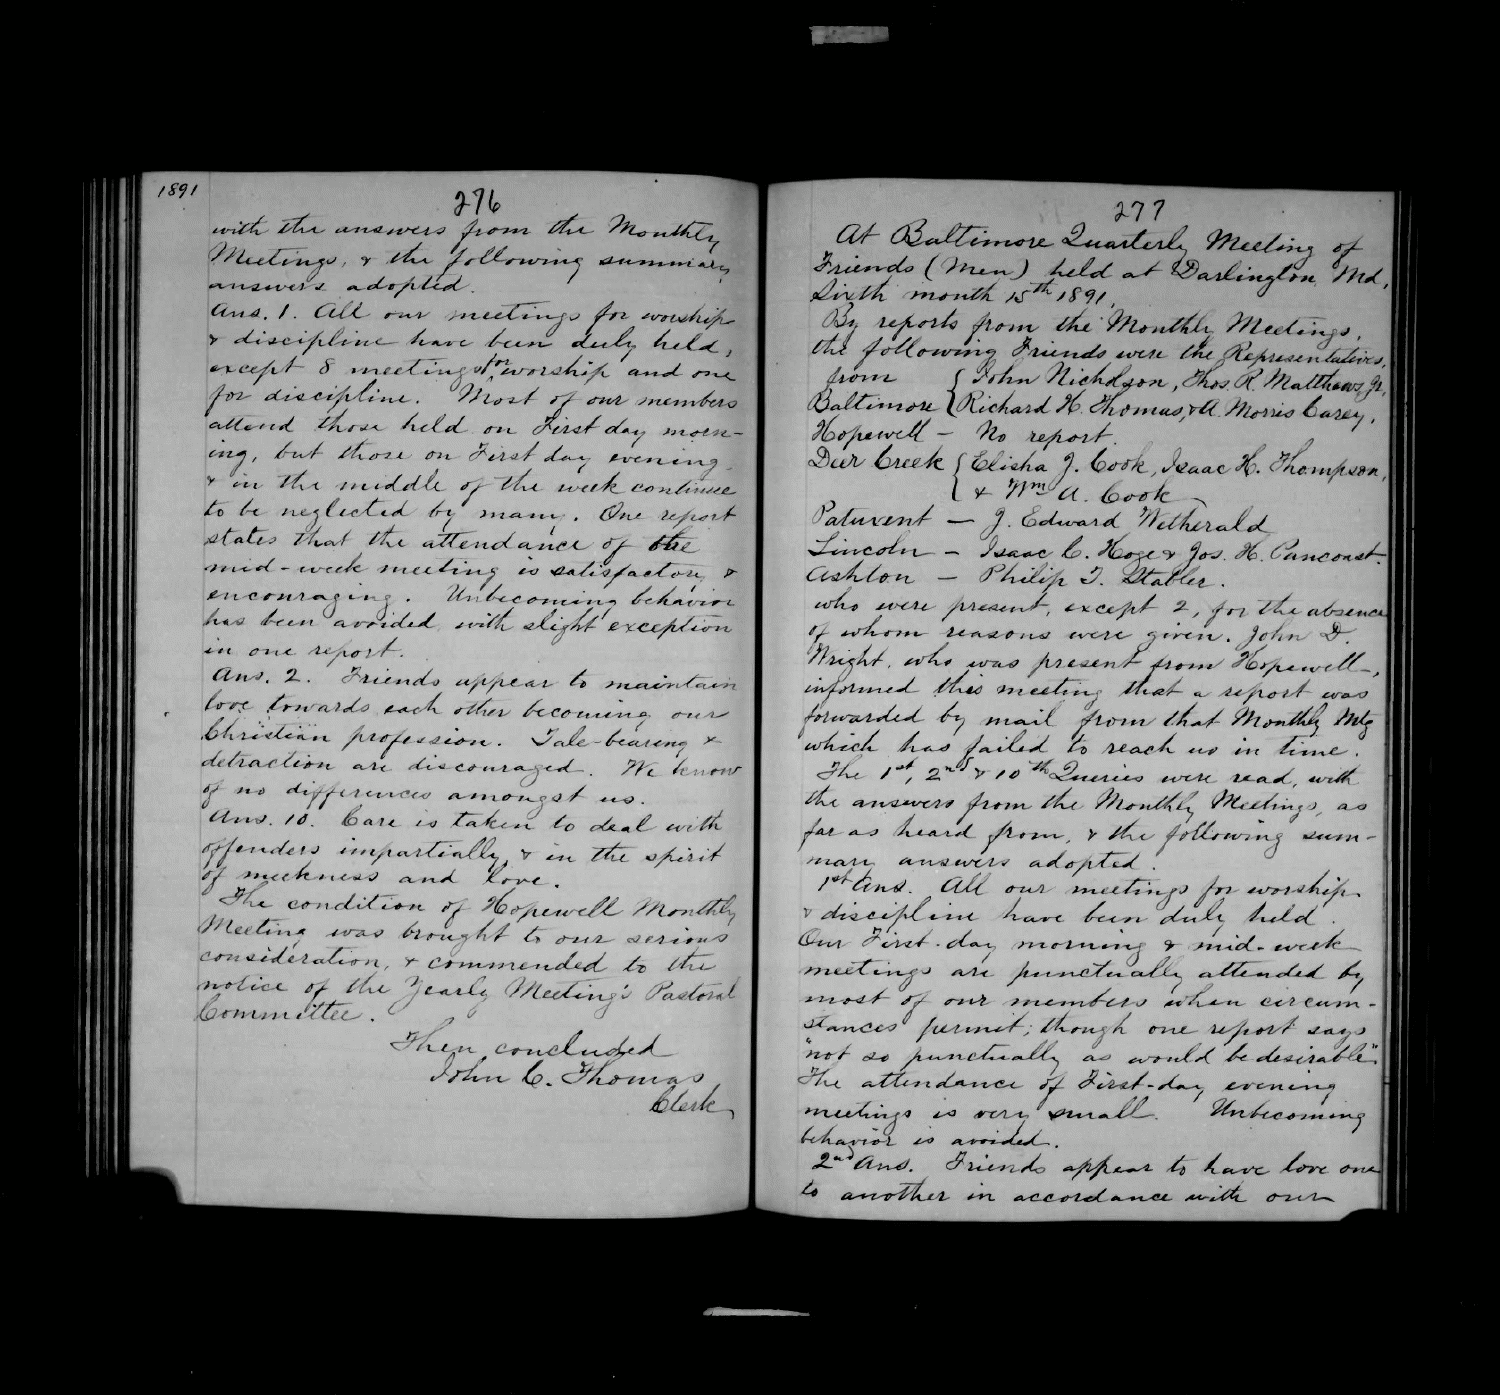 1891
276
with the answers from the Monthly
Meetings, & the following summary
answers adopted.
Ans. 1. All our meetings for worship
& discipline have been duly held,
except 8 meetings for worship and one
for discipline. Most of our members
attend those held on First day morn-
ing, but those on First day evening
& in the middle of the week continue
to be neglected by many. One report
states that the attendance of the
mid-week meeting is satisfactory &
encouraging. Unbecoming behavior
has been avoided with slight exception
in one report.
Ans. 2. Friends appear to maintain
love towards each other becoming our
Christian profession. Tale-bearing &
detraction are discouraged. We know
of no differences amongst us.
Ans. 10. Care is taken to deal with
offenders impartially, & in the spirit
of meekness and love.
The condition of Hopewell Monthly
Meeting was brought to our serious
consideration, & commended to the
notice of the Yearly Meeting's Pastoral
Committee.
Then concluded
John C. Thomas
Clerk
277
At Baltimore Quarterly Meeting of
Friends (Men) held at Darlington Md,
Sixth month 15th 1891.
By reports from the Monthly Meetings,
the following Friends were the Representatives,
from { John Nicholson, Thos. R. Matthews Jr,
Baltimore { Richard H. Thomas, & A. Morris Carey,
Hopewell — No report.
Deer Creek { Elisha J. Cook, Isaac H. Thompson,
{ & Wm A. Cook
Patuxent — J. Edward Wetherald
Lincoln — Isaac C. Hoge & Jos. H. Pancoast.
Ashton — Philip T. Stabler.
who were present, except 2, for the absence
of whom reasons were given. John D.
Wright, who was present from Hopewell,
informed this meeting that a report was
forwarded by mail from that Monthly Mtg
which has failed to reach us in time.
The 1st, 2nd & 10th Queries were read, with
the answers from the Monthly Meetings, as
far as heard from, & the following sum-
mary answers adopted.
1st Ans. All our meetings for worship
& discipline have been duly held.
Our First-day morning & mid-week
meetings are punctually attended by
most of our members when circum-
stances permit; though one report says
"not so punctually as would be desirable"
The attendance of First-day evening
meetings is very small. Unbecoming
behavior is avoided.
2nd Ans. Friends appear to have love one
to another in accordance with our